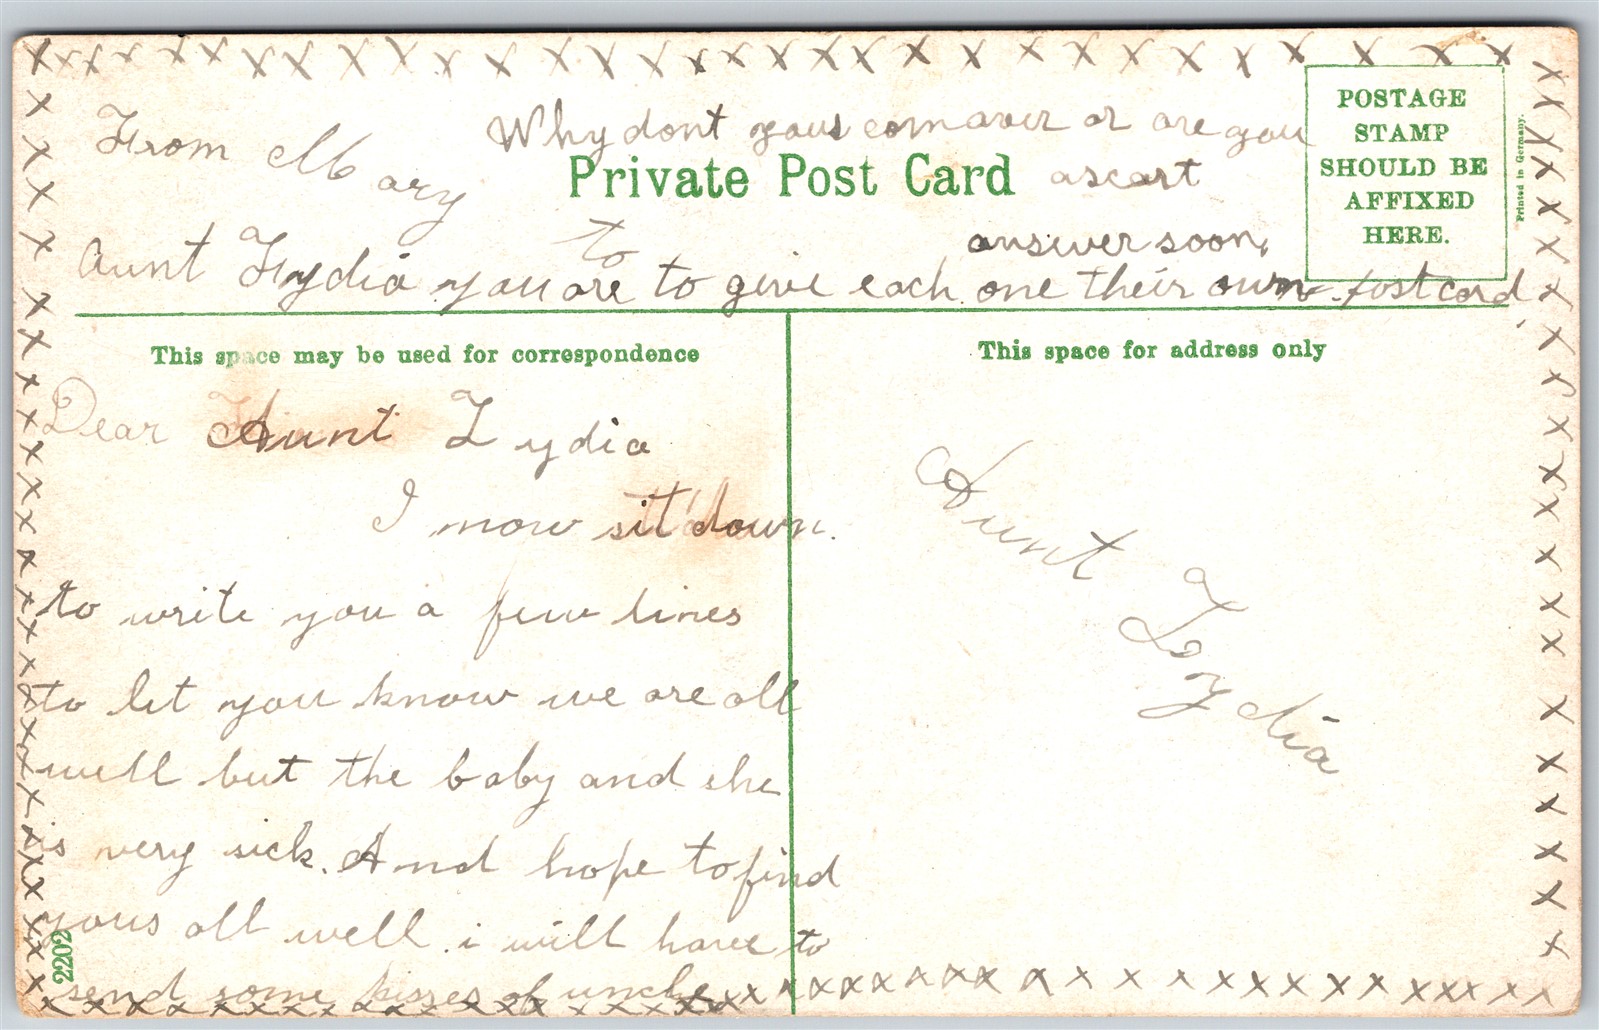 From Mary
Why dont yous com aver or are you
ascart
answer soon,
to
Aunt Lydia you are to give each one their own postcard
Private Post Card
POSTAGE
STAMP
SHOULD BE
AFFIXED
HERE.
Printed in Germany.
This space may be used for correspondence
This space for address only
Dear Aunt Lydia
I now sit down.
to write you a few lines
to let you know we are all
well but the baby and she
is very sick. And hope to find
yous all well. i will have to
send some kisses of uncle
Aunt Lydia
2202